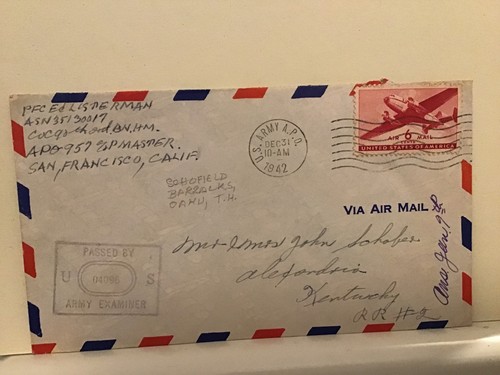 PFC Ed LISTERMAN
ASN 35130017
APO 957 % P.MASTER.
SAN, FRANCISCO, CALIF.
SCHOFIELD
BARRACKS,
OAHU, T.H.
U.S. ARMY A.P.O.
DEC 31
10-AM
1942
AIR 6 MAIL
CENTS
UNITED STATES OF AMERICA
VIA AIR MAIL
Ans. Jan. 9th
PASSED BY
U S
ARMY EXAMINER
Mr & Mrs John Schofer
Alexandria
Kentucky
RR #2